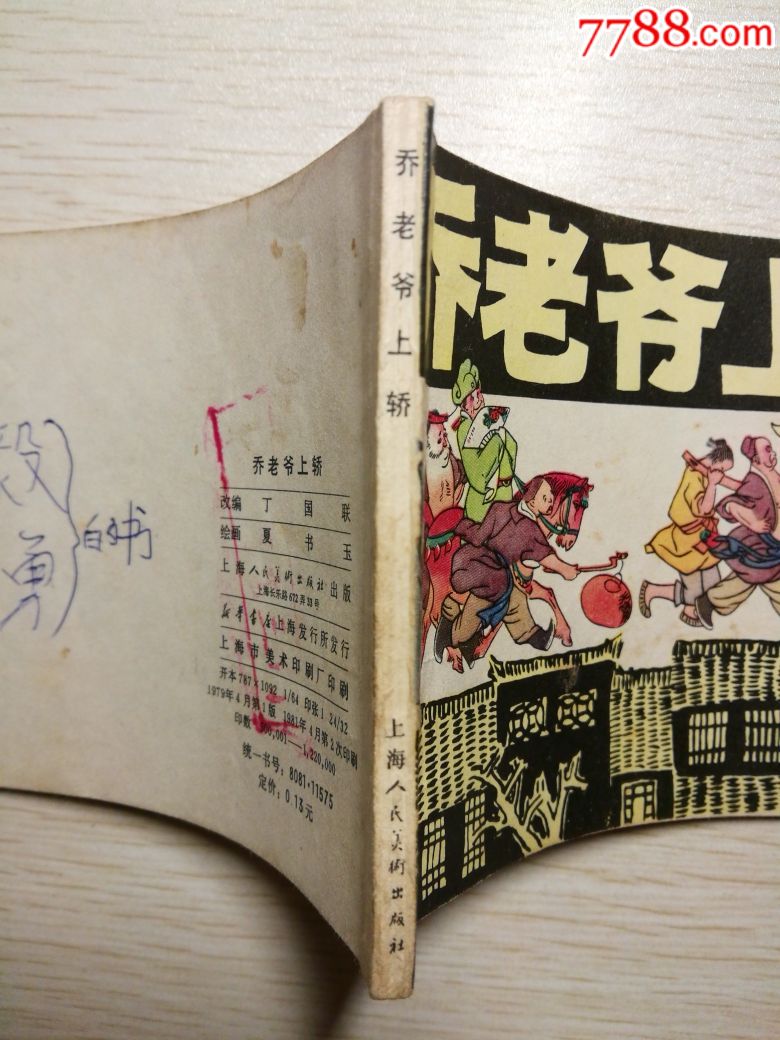 7788.com
乔老爷上轿
上海人民美術出版社
乔老爷上
乔老爷上轿
改编 丁国联
绘画 夏书玉
上海人民美術出版社出版
上海长乐路672弄33号
新华书店上海发行所发行
上海市美术印刷厂印刷
开本 787×1092 1/64 印张 1 24/32
1979年4月第1版 1981年4月第2次印刷
印数 001—1,220,000
统一书号：8081·11575
定价：0.13元
段
勇
的书